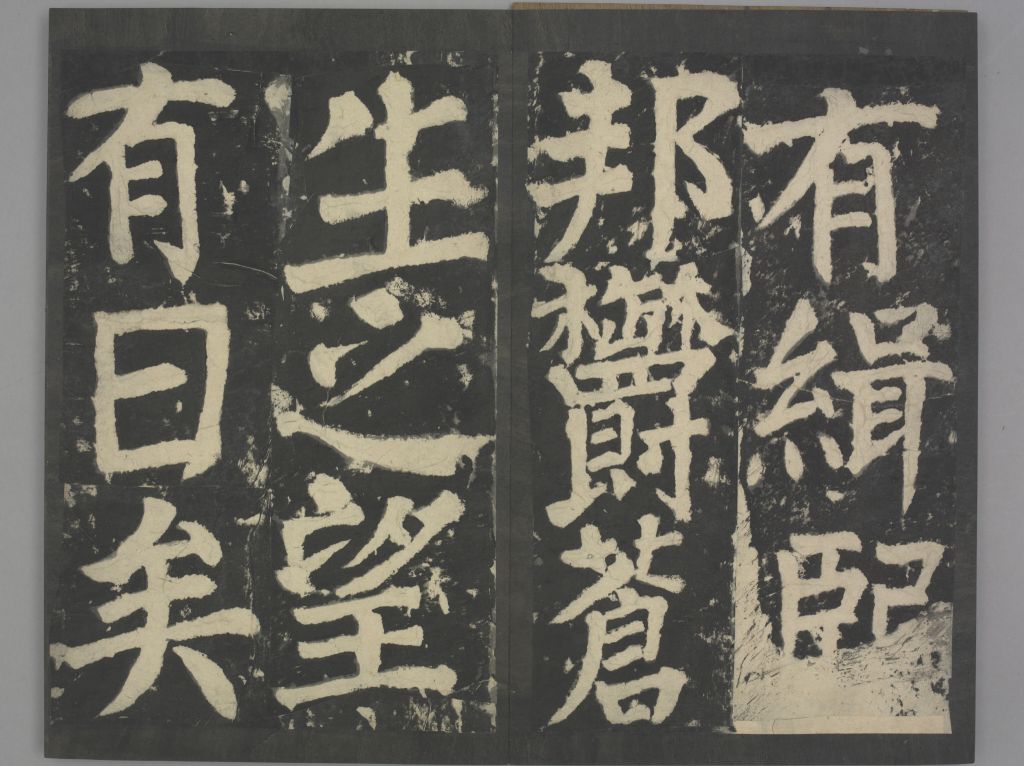 有緝熙
邦欝蒼
生之望
有日矣